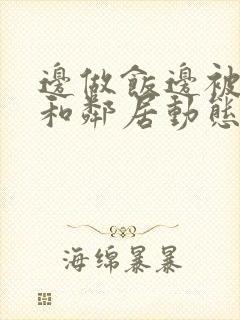 邊做飯邊被
和鄰居動態
海绵暴暴